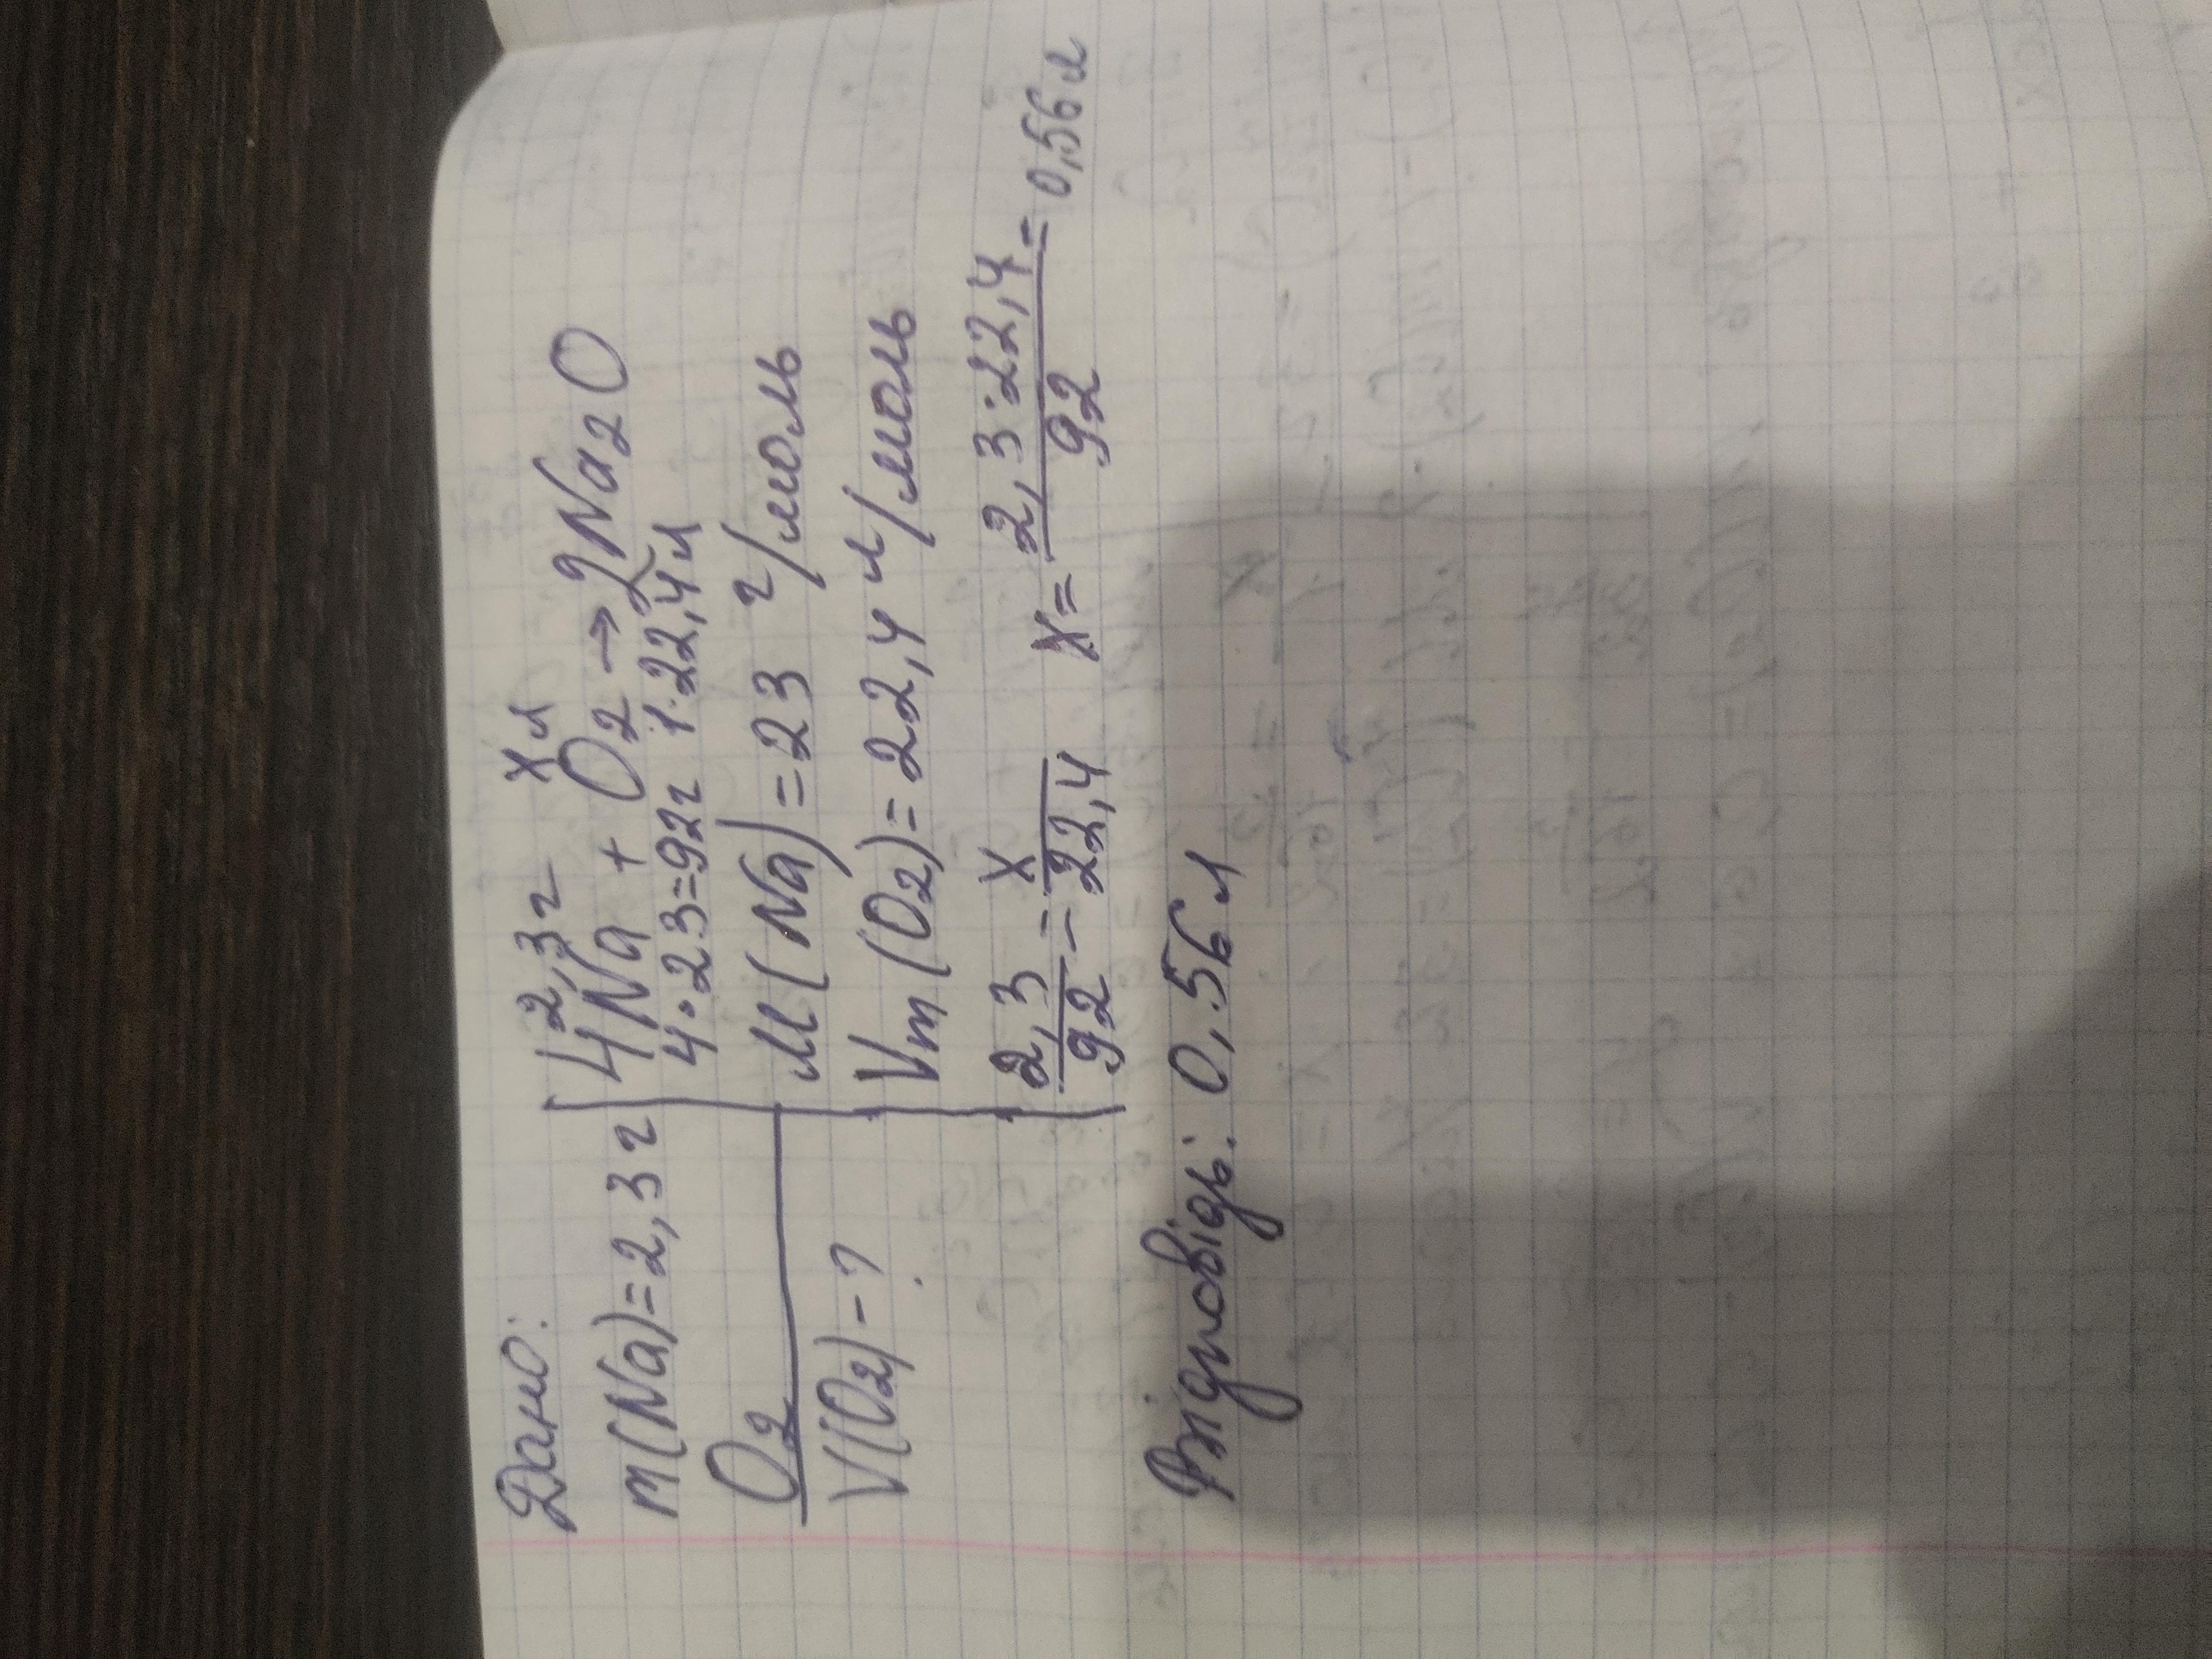 Дано:
m(Na)=2,3г
O₂
V(O₂)-?
2,3г xл
4Na + O₂ → 2Na₂O
4·23=92г 1·22,4л
M(Na)=23 г/моль
Vm(O₂)=22,4 л/моль
2,3/92 = x/22,4 x= 2,3·22,4/92 = 0,56л
Відповідь: 0,56л